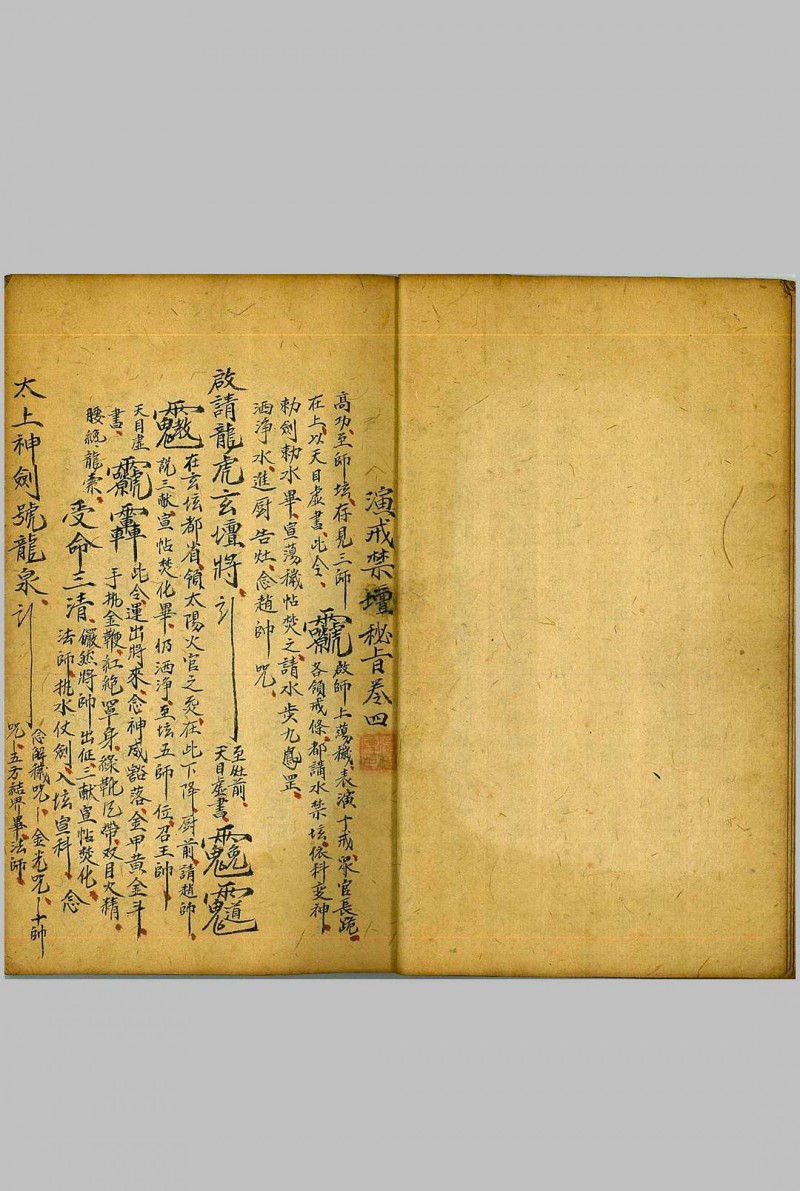 演戒禁壇秘旨卷四
高功至師坛存見三師
在上以天目虛書此令
啟師上蕩穢表演十戒眾官長跪
各領戒條都請水禁坛依科变神
勅劍勅水畢宣蕩穢帖焚之請水步九鳳罡
洒淨水進厨告灶念趙帥咒
啟請龍虎玄壇將
至灶前
天目虛書
在玄坛都省領太陽火官之炁在此下降厨前請趙帥
説三献宣帖焚化畢仍洒淨至坛五師位召王帥
天目虛
書
此令運出將來念神威豁落金甲黄金斗
手执金鞭紅絶罩身綠靴尼帶双目火精
腰纏龍索
受命三清
儼然將帥出征三献宣帖焚化
法師执水仗劍入坛宣科念
太上神劍號龍泉
念解穢咒金光咒十帥
咒五方結界畢法師